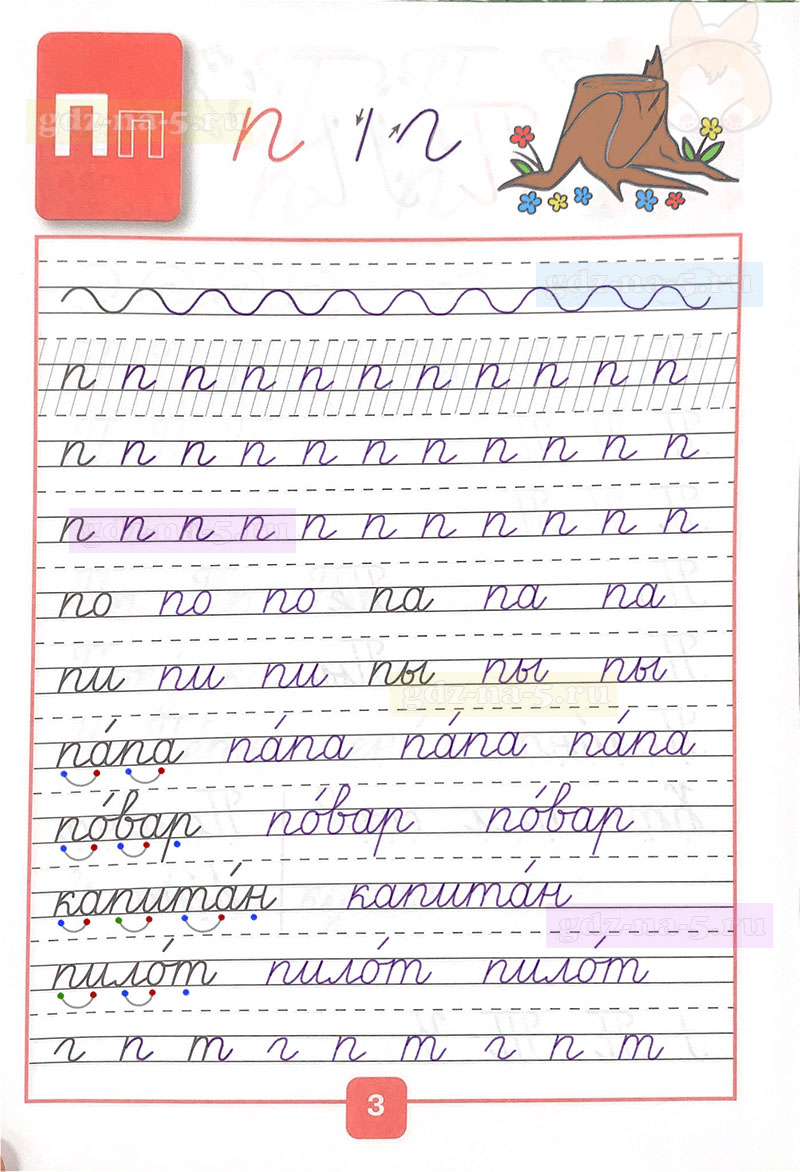 Пп п
gdz-na-5.ru
gdz-na-5.ru
п п п п п п п п п п п
п п п п п п п п п п п
п п п п п п п п п п п
gdz-na-5.ru
по по по па па па
пи пи пи пы пы пы
gdz-na-5.ru
па́па па́па па́па па́па
по́вар по́вар по́вар
капита́н капита́н
gdz-na-5.ru
пило́т пило́т пило́т
г п т г п т г п т
3